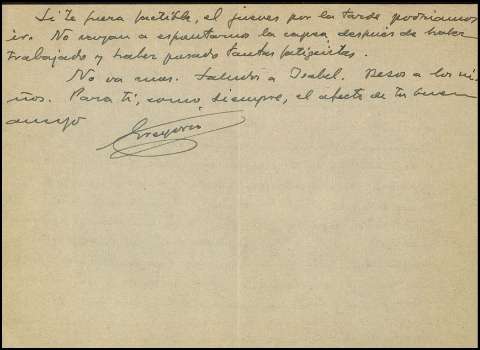 Si te fuera factible, el jueves por la tarde podríamos
ir. No vayan a espantarno la capsa, después de haber
trabajado y haber pasado tantas fatiguitas.
No va mas. Saludos a Isabel. Besos a los ni-
ños. Para ti, como siempre, el afecto de tu buen
amigo
Gregorio